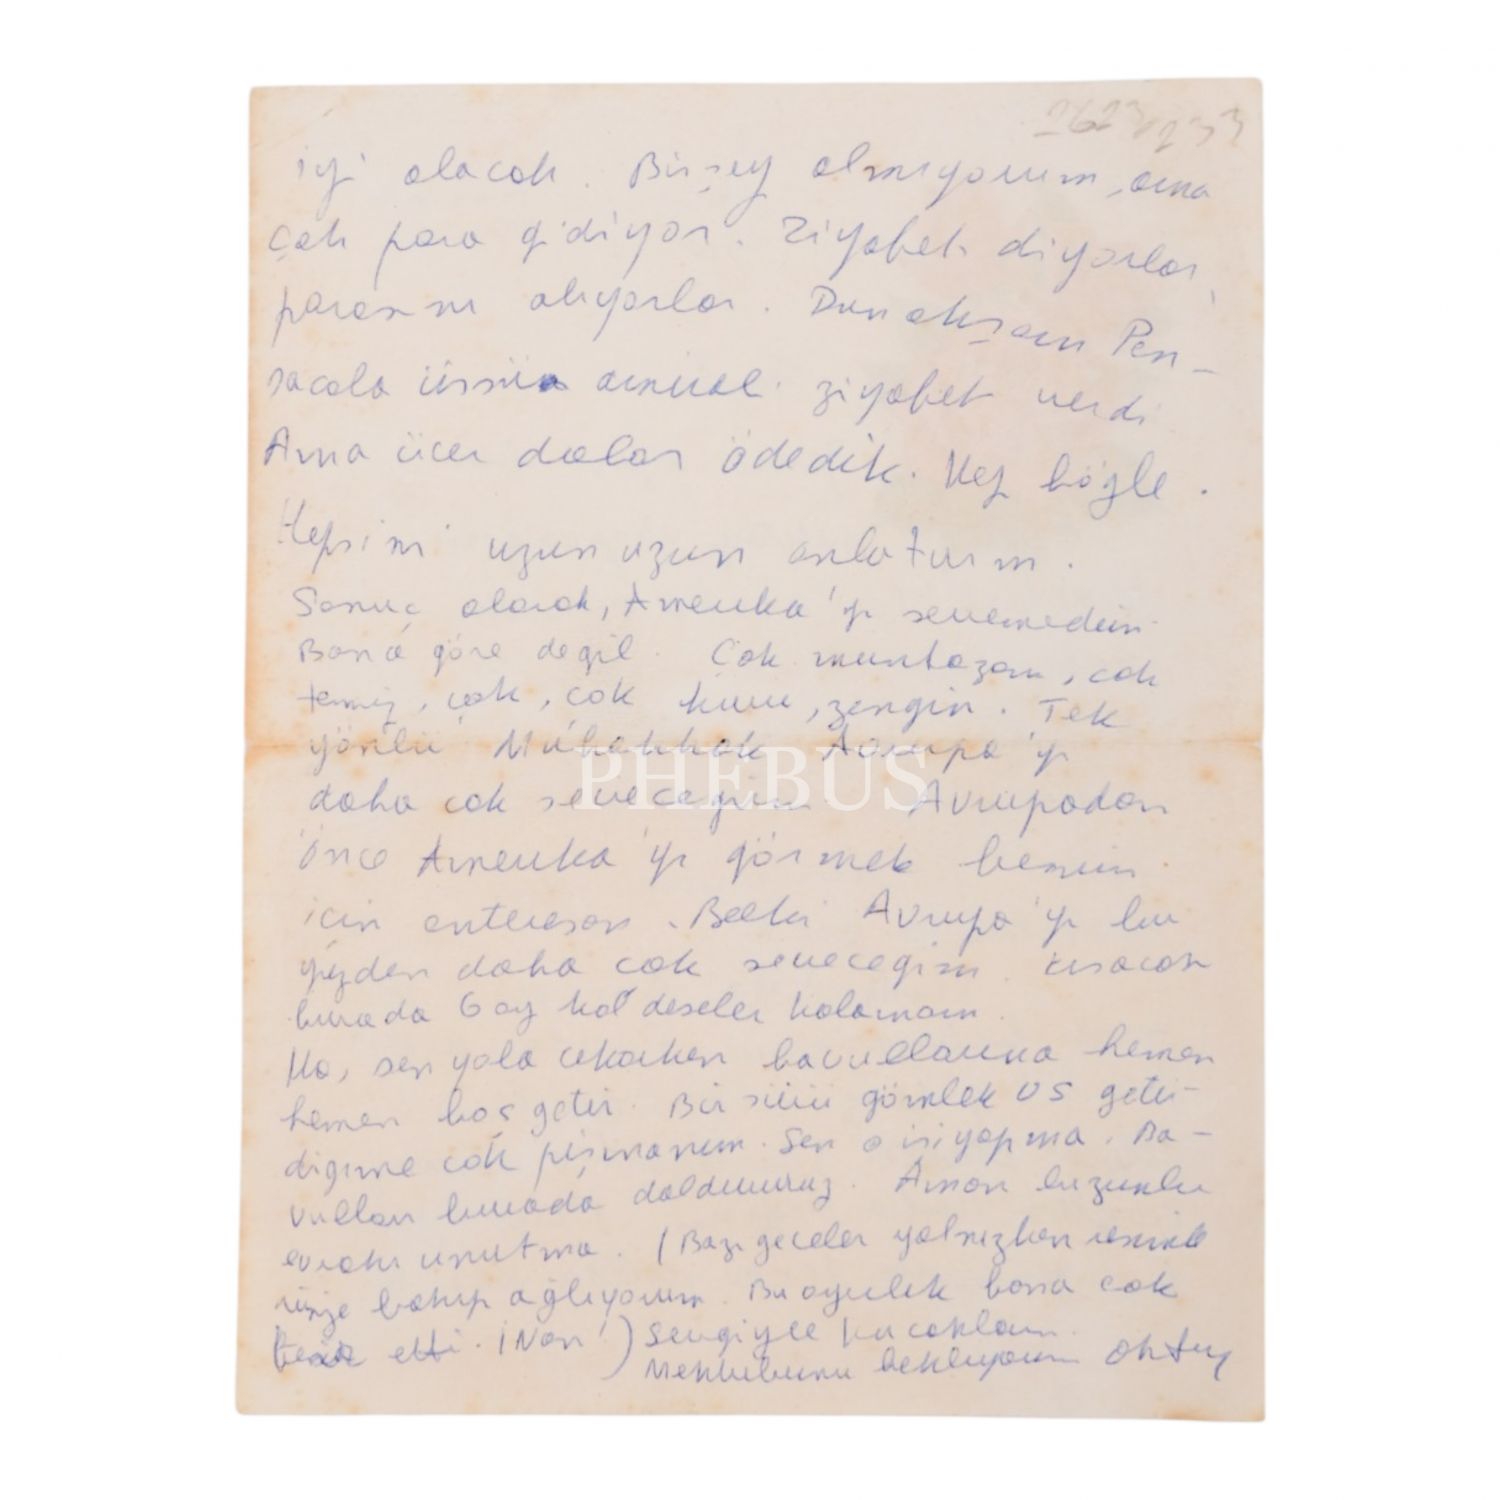 2623/233
iyi olacak. Birşey almıyorum, ama
çok para gidiyor. Ziyafet diyorlar,
parasını alıyorlar. Dün akşam Pen-
sacola üssün amiral ziyafet verdi
Ama üçer dolar ödedik. Hep böyle.
Hepsini uzun uzun anlatırım.
Sonuç olarak, Amerika'yı sevemedim
Bana göre değil. Çok muntazam, çok
temiz, çok, çok kuru, zengin. Tek
yönlü Muhakkak Avrupa'yı
daha çok seveceğim Avrupadan
Önce Amerika'yı görmek benim
için enteresan. Belki Avrupa'yı bu
yüzden daha çok seveceğim. Kısacası
burada 6 ay kal deseler kalamam.
Ha, sen yola çıkarken bavullarına hemen
hemen boş getir. Bir sürü gömlek US getir-
diğime çok pişmanım. Sen o işi yapma. Ba-
vulları burada doldururuz. Aman lüzumlu
evrakı unutma. (Bazı geceler yalnızken resimle
rinize bakıp ağlıyorum. Bu ayrılık bana çok
tesir etti. İnan!) Sevgiyle kucaklarım.
Mektubunu bekliyorum Oktay
PHEBUS